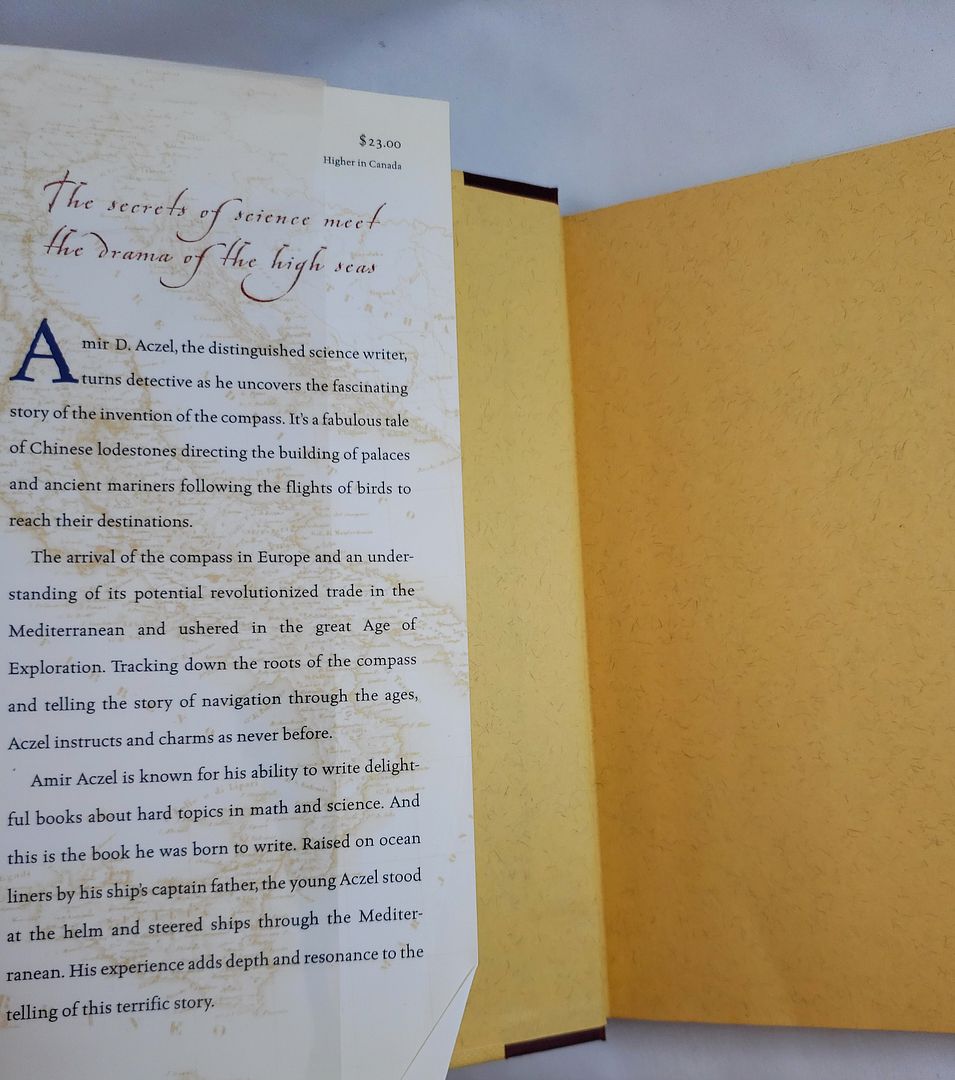 $23.00
Higher in Canada
The secrets of science meet
the drama of the high seas
Amir D. Aczel, the distinguished science writer,
turns detective as he uncovers the fascinating
story of the invention of the compass. It's a fabulous tale
of Chinese lodestones directing the building of palaces
and ancient mariners following the flights of birds to
reach their destinations.
The arrival of the compass in Europe and an under-
standing of its potential revolutionized trade in the
Mediterranean and ushered in the great Age of
Exploration. Tracking down the roots of the compass
and telling the story of navigation through the ages,
Aczel instructs and charms as never before.
Amir Aczel is known for his ability to write delight-
ful books about hard topics in math and science. And
this is the book he was born to write. Raised on ocean
liners by his ship's captain father, the young Aczel stood
at the helm and steered ships through the Mediter-
ranean. His experience adds depth and resonance to the
telling of this terrific story.